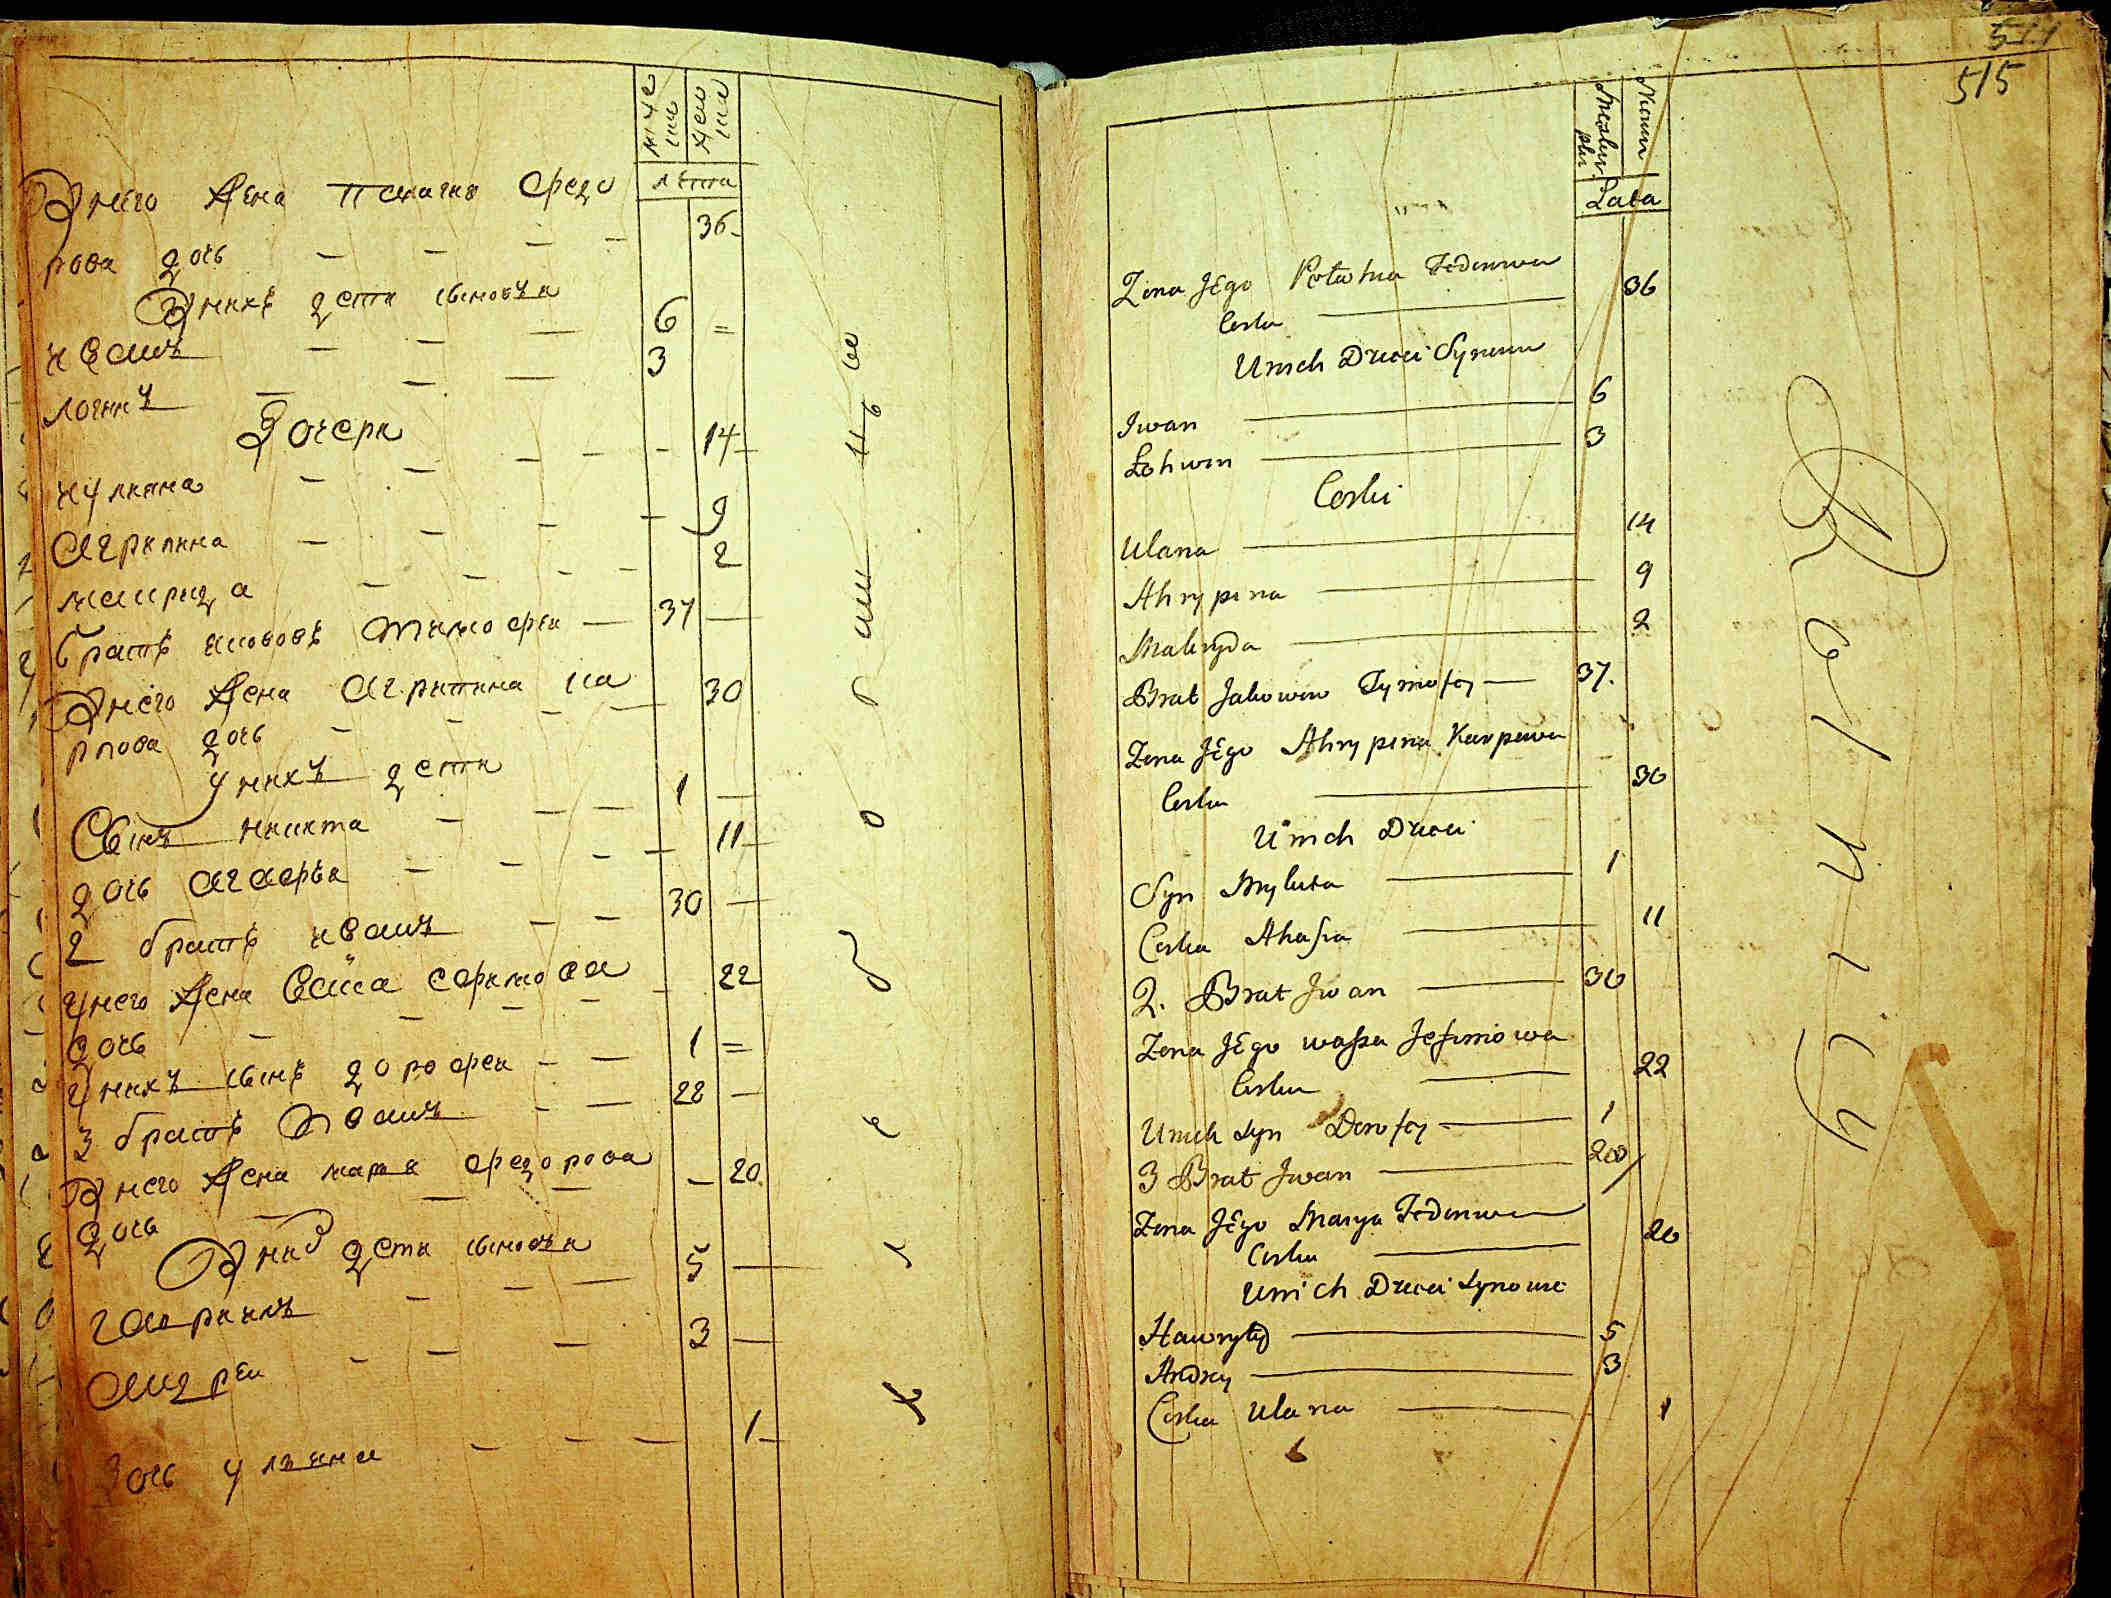 муже
ска
жен
ска
лѣта
Внего жена Пелагия Федо
рова дочь 36
Внихъ дети сыновья
Иванъ 6
Логинъ 3
Дочери
Иулиана 14
Агрипина 9
9
2
братъ Иаковъ Тимофеи 37
Внего жена Агрипина Ка
рпова дочь 30
Унихъ дети
Сынъ Никита 1
дочь Агафья 11
2 братъ Иванъ 30
Унего жена Васа Ефимова
дочь 22
Унихъ сынъ Дорофеи 1
3 братъ Иванъ 28
Внего жена Марья Федорова
дочь 20
Вних дети сыновья
Гавриилъ 5
Андреи 3
дочь Ульяна 1
хлеборашцы
515
Niewi
Lata
Zona Jego Pałahia Fedorowa
Corka 36
Unich Dzieci Synowie
Iwan 6
Łohwin 3
Corki
Ulana 14
Ahrypina 9
Makryda 2
Brat Jakowow Tymofey 37.
Zona Jego Ahrypina Karpowa
Corka 30
Unich Dzieci
Syn Mykita 1
Corka Ahafia 11
2. Brat Jwan 30
Zona Jego wassa Jefimowa
Corka 22
Unich syn Dorofey 1
3 Brat Jwan 28
Zona Jego Marya Fedorowa
Corka 20
Unich Dzieci synowie
Hawryło 5
Andrey 3
Corka Ulana 1
Rolnicy